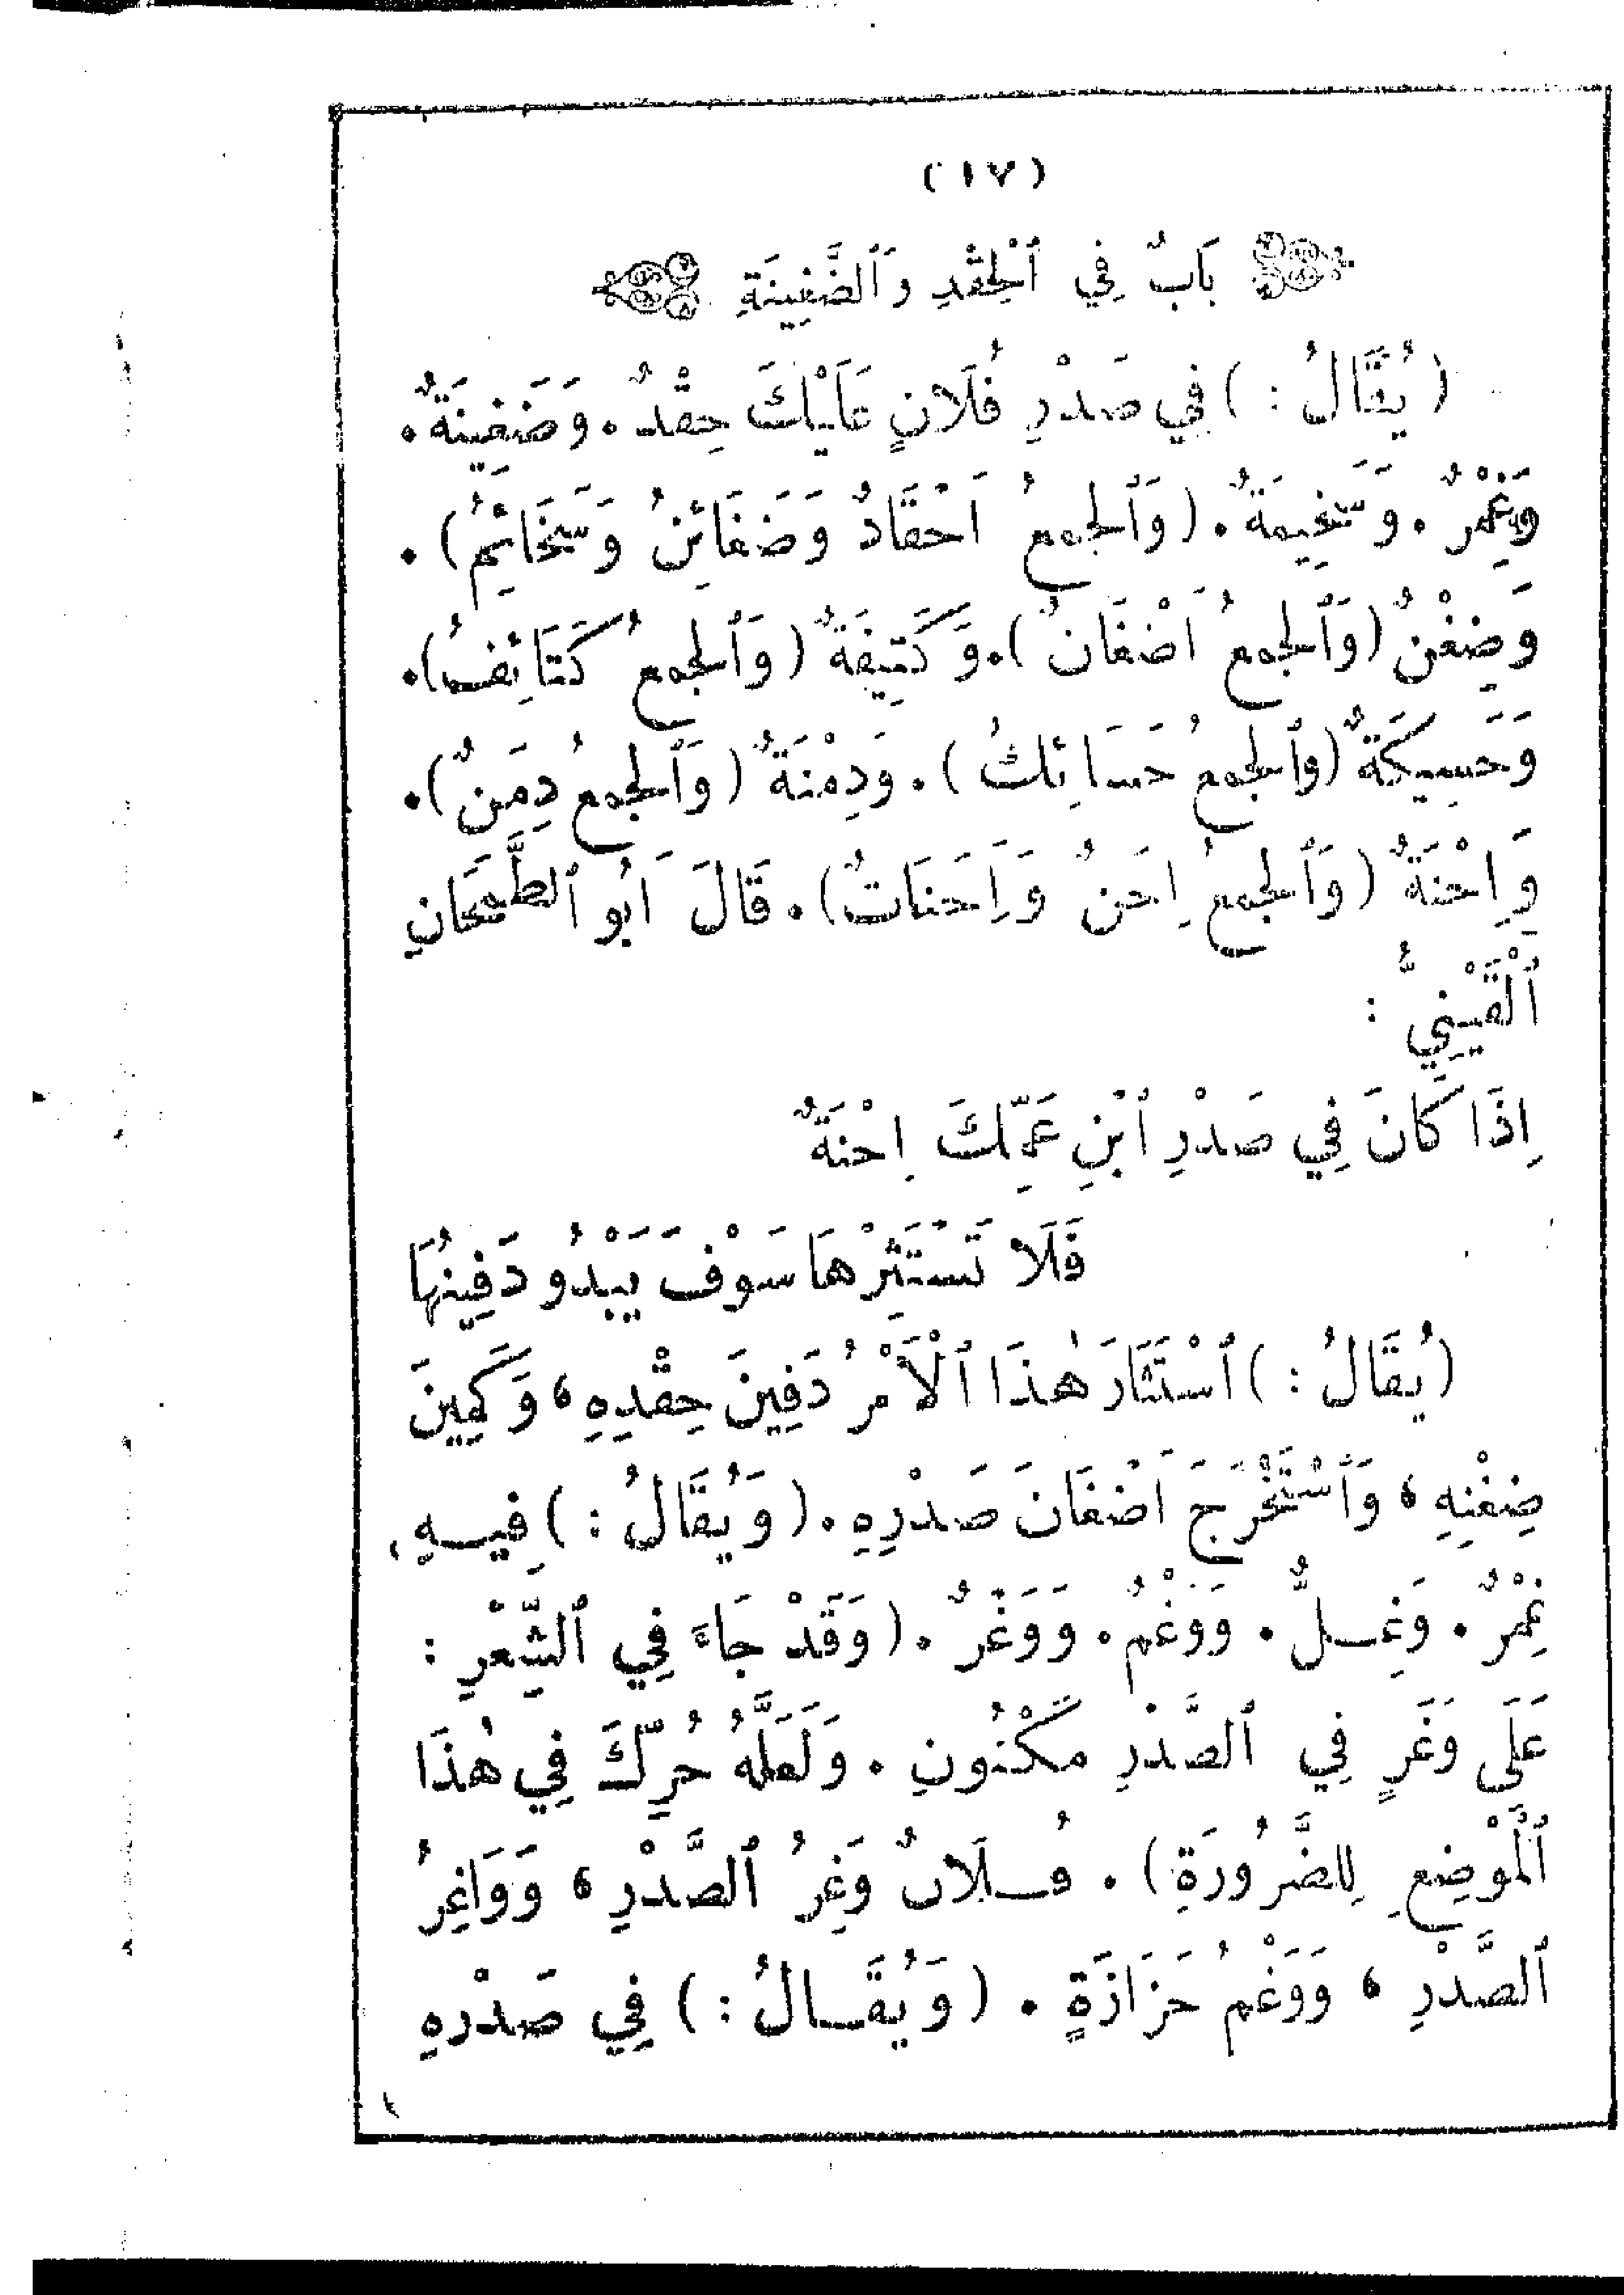 (١٧)
بَابٌ فِي ٱلْحِقْدِ وَٱلضَّغِينَةِ
(يُقَالُ:) فِي صَدْرِ فُلَانٍ عَلَيْكَ حِقْدٌ. وَضَغِينَةٌ.
وَغِمْرٌ. وَسَخِيمَةٌ. (وَٱلْجَمعُ اَحْقَادٌ وَضَغَائِنُ وَسَخَائِمُ).
وَضِغْنٌ (وَٱلْجَمعُ اَضْغَانٌ). وَكَتِيفَةٌ (وَٱلْجَمعُ كَتَائِفُ).
وَحَسِيكَةٌ (وَٱلْجَمعُ حَسَائِكُ). وَدِمْنَةٌ (وَٱلْجَمعُ دِمَنٌ).
وَاِحْنَةٌ (وَٱلْجَمعُ اِحَنٌ وَاِحَنَاتٌ). قَالَ اَبُو ٱلطَّمَحَانِ
ٱلْقَيْنِيُّ:
اِذَا كَانَ فِي صَدْرِ ٱبْنِ عَمِّكَ اِحْنَةٌ
فَلَا تَسْتَثِرْهَا سَوْفَ يَبْدُو دَفِينُهَا
(يُقَالُ:) ٱسْتَثَارَ هٰذَا ٱلْأَمْرُ دَفِينَ حِقْدِهِ، وَكَمِينَ
ضِغْنِهِ، وَٱسْتَخْرَجَ اَضْغَانَ صَدْرِهِ. (وَيُقَالُ:) فِيهِ
غِمْرٌ. وَغِلٌّ. وَوَغْمٌ. وَوَغْرٌ. (وَقَدْ جَاءَ فِي ٱلشِّعْرِ:
عَلَى وَغَرٍ فِي ٱلصَّدْرِ مَكْنُونِ. وَلَعَلَّهُ حُرِّكَ فِي هٰذَا
ٱلْمَوْضِعِ لِلضَّرُورَةِ). فُلَانٌ وَغِرُ ٱلصَّدْرِ، وَوَاغِرُ
ٱلصَّدْرِ، وَوَغْمُ حَزَازَةٍ. (وَيُقَالُ:) فِي صَدْرِهِ